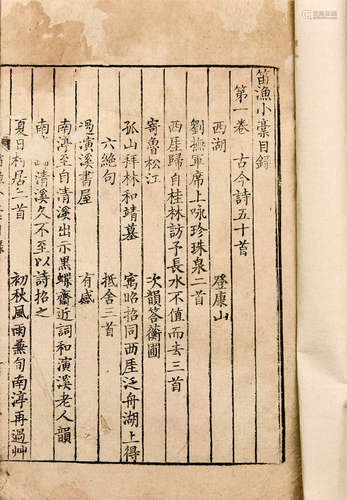 笛漁小藁目錄
第一卷　古今詩五十首
西湖　登康山
劉撫軍席上咏珍珠泉二首
西厓歸自桂林訪予長水不值而去三首
寄魯松江　次韻答蘅圃
孤山拜林和靖墓　寓昭招同西厓泛舟湖上得
六絶句　抵舍三首
過濱溪書屋　有感
南渟至自清溪出示黑蝶齋近詞和濱溪老人韻
南 清溪久不至以詩招之
夏日村居二首　初秋風雨蒹旬南渟再過艸